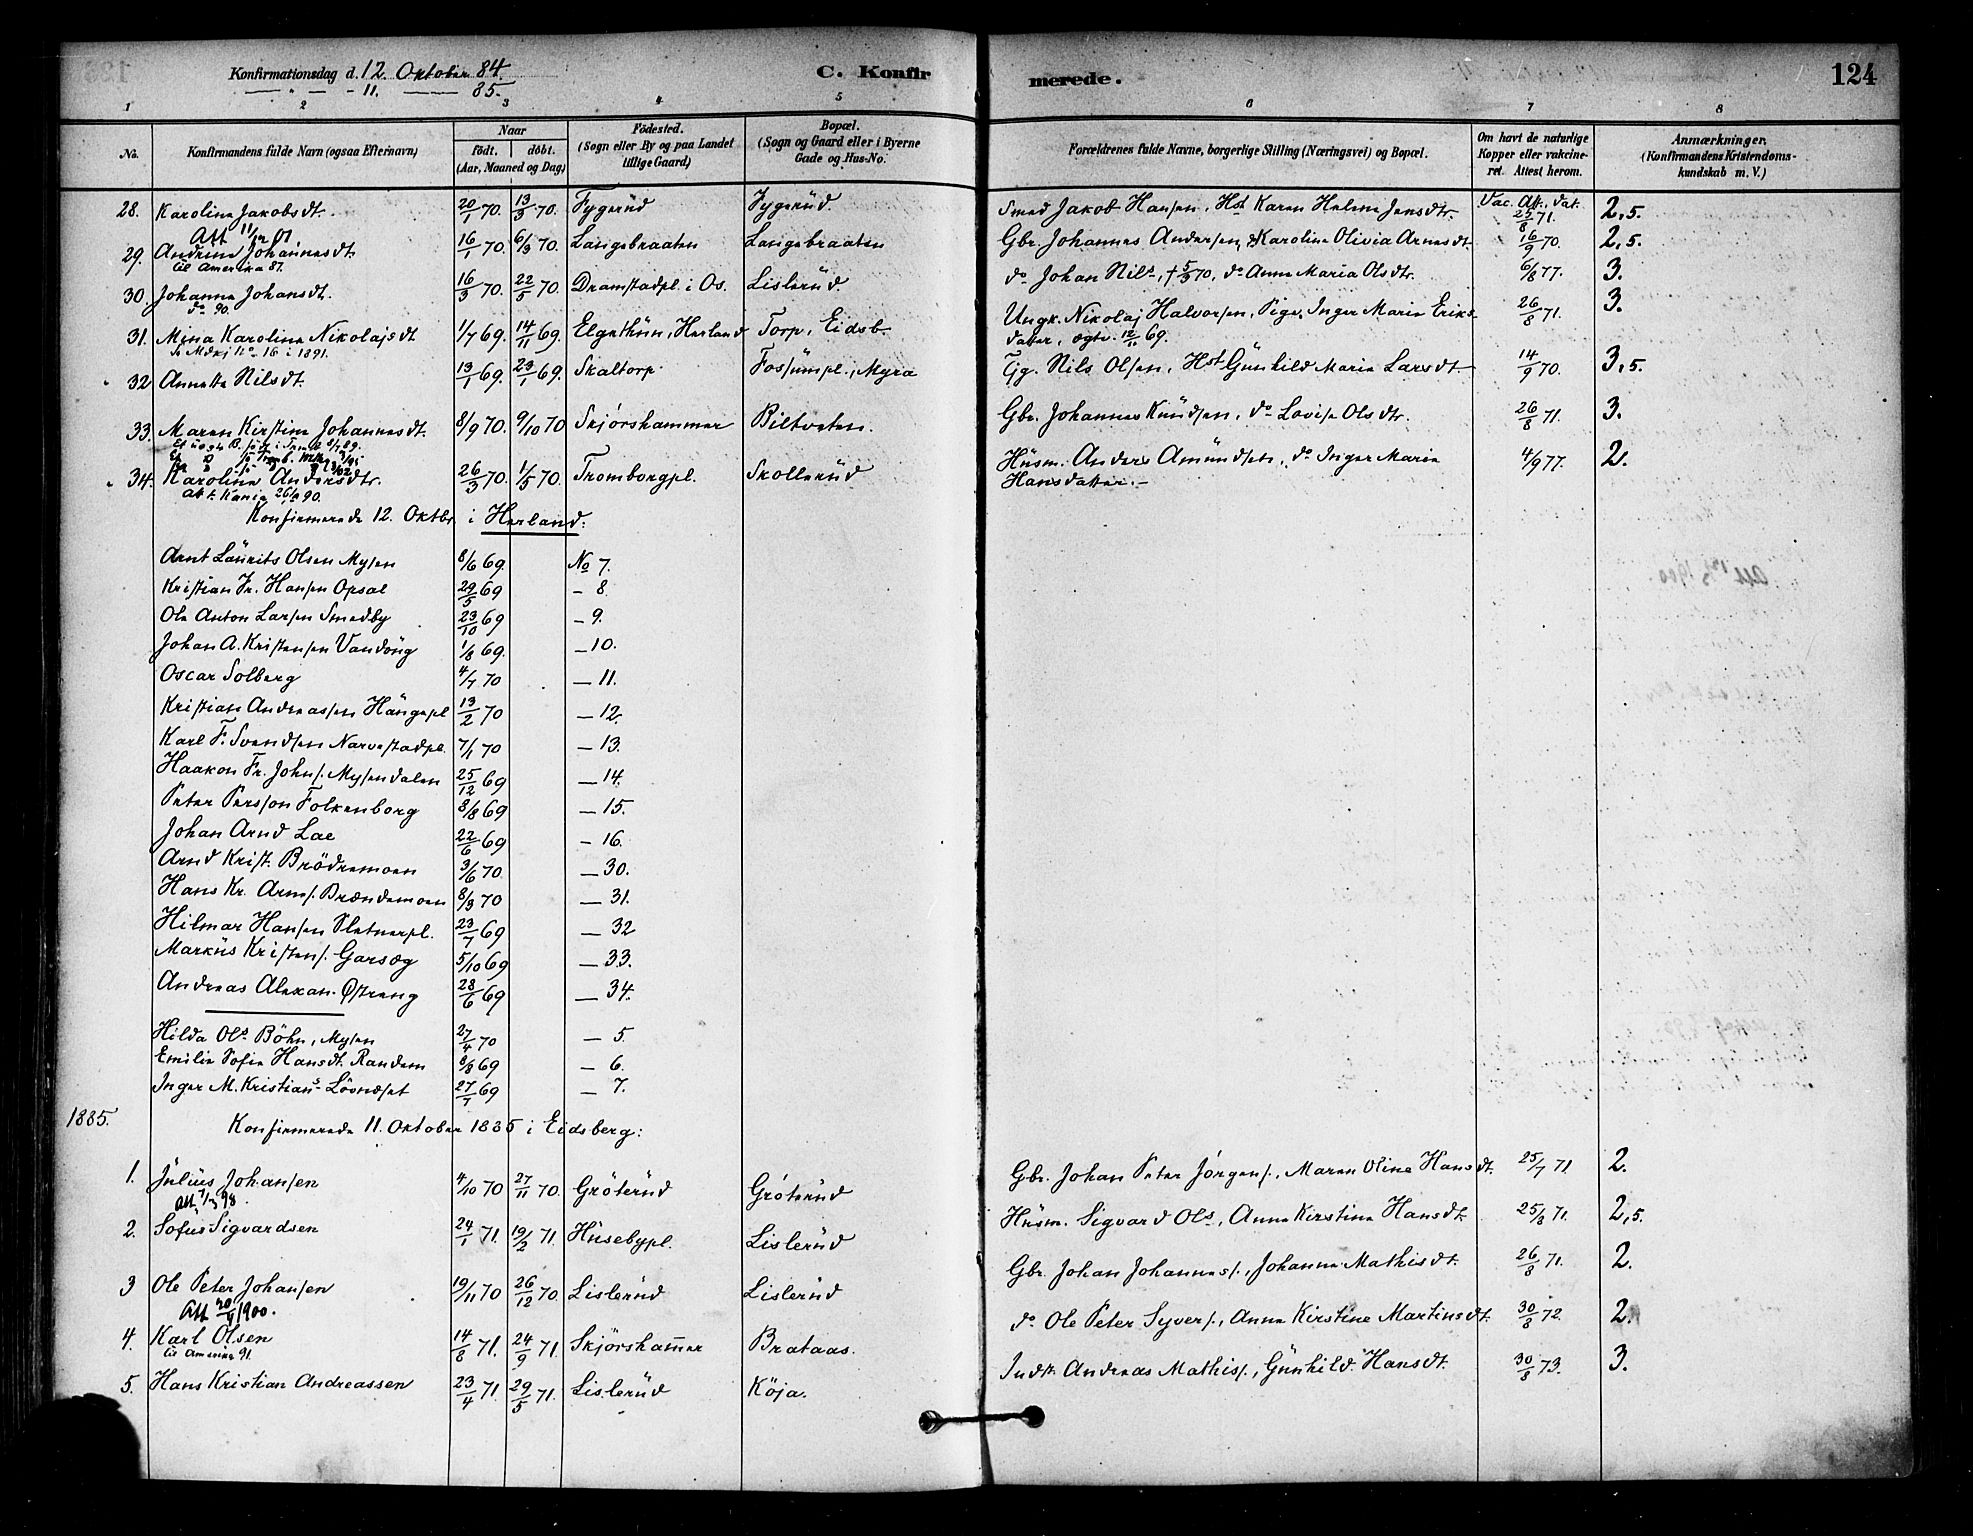 Konfirmationsdag d. 12. Oktober 84. C. Konfirmerede. 124
— " — - 11. — 85.
1 2 3 4 5 6 7 8
No. Konfirmandens fulde Navn (ogsaa Efternavn) Naar födt. döbt. (Aar, Maaned og Dag) Födested. (Sogn eller By og paa Landet tillige Gaard) Bopæl. (Sogn og Gaard eller i Byerne Gade og Hus-No.) Forældrenes fulde Navne, borgerlige Stilling (Næringsvei) og Bopæl. Om havt de naturlige Kopper eller vakcineret. Attest herom. Anmærkninger. (Konfirmandens Kristendomskundskab m. V.)
Vac. Att. dat.
28. Karoline Jakobsdt. 20/1 70. 13/3 70. Fygerüd Fygerüd. Smed Jakob Hansen, Hst Karen Helene Jensdtr. 25/8 71. 2,5.
Att 11/12 01
29. Andrine Johannesdt. 16/1 70. 6/3 70. Langebraaten Langebraaten Gbr. Johannes Andersen, do Karoline Olivia Arnesdt. 16/9 70. 2,5.
til Amerika 87.
30. Johanne Johansdt. 16/3 70. 22/5 70. Dramstadpl. i Os. Lislerüd. do Johan Nils., † 5/3 70, do Anne Maria Olsdtr. 6/8 77. 3.
do 90.
31. Mina Karoline Nikolajsdt. 1/7 69. 14/11 69. Elgetün, Herland Torp, Eidsb. Ungk. Nikolaj Halvorsen, Pige Inger Marie Eriks- 26/8 71. 3.
datter, ægtv. 12/11 69.
Se Mskj No 16 i 1891.
32 Annette Nilsdt. 13/1 69. 23/1 69. Skaltorp. Fossümpl., Myra Gg. Nils Olsen, Hst Günhild Marie Larsdt. 14/9 70. 3,5.
33. Maren Kirstine Johannesdt. 8/9 70. 9/10 70 Skjörshammer Biltveten. Gbr. Johannes Knüdsen, do Lovise Olsdtr. 26/8 71. 3.
34. Karoline Andersdtr. 26/3 70. 1/5 70. Tromborgpl. Skollerüd Hüsm. Anders Amündsen, do Inger Marie 4/9 77. 2.
Hansdatter. —
Konfirmerede 12. Oktbr. i Herland:
Arnt Laürits Olsen Mysen 8/6 69. No 7.
Kristian Fr. Hansen Opsal 29/5 69 - 8.
Ole Anton Larsen Smedby 23/10 69 - 9.
Johan A. Kristensen Vandüng 1/8 69. - 10.
Oscar Solberg 4/7 70 — 11.
Kristian Andreassen Hängepl 13/2 70 — 12.
Karl F. Svendsen Narvestadpl. 7/1 70 — 13.
Haakon Fr. Johns. Mysendalen 25/12 69 — 14.
Peter Persson Folkenborg 8/8 69 — 15.
Johan Arnd Lae 22/6 69 - 16.
Arnd Krist. Brödremoen 3/6 70. — 30.
Hans Kr. Arns. Brændemoen 8/3 70 — 31.
Hilmar Hansen Sletnerpl. 23/7 69 — 32
Markus Kristens. Garsæg 5/10 69 — 33.
Andreas Alexan. Østreng 28/6 69 — 34.
Hilda Ols. Böhn, Mysen 27/4 70 — 5.
Emilie Sofie Hansdt. Randem 8/8 69 — 6.
Inger M. Kristians. Lövneset 27/7 69 — 7.
1885. Konfirmerede 11. Oktober 1885 i Eidsberg:
1. Jülius Johansen 4/10 70 27/11 70. Gröterüd Gröterüd Gbr. Johan Peter Jörgens., Maren Oline Hansdt. 25/7 71 2.
2. Sofüs Sigvardsen 24/1 71. 19/2 71. Hüsebypl. Lislerüd Hüsm. Sigvard Ols., Anne Kirstine Hansdt. 25/8 71. 2,5.
3 Ole Peter Johansen 19/11 70 26/12 70. Lislerüd Lislerüd Gbr. Johan Johanness., Johanne Mathisdt. 26/8 71. 2.
4. Karl Olsen 14/8 71. 24/9 71. Skjörshamer Brataas. do Ole Peter Syvers., Anne Kirstine Martinsdt. 30/8 72. 2.
til Amerika 91.
5. Hans Kristian Andreassen 23/4 71. 29/5 71. Lislerüd Köja. Indst. Andreas Mathis., Günhild Hansdt. 30/8 73. 3.